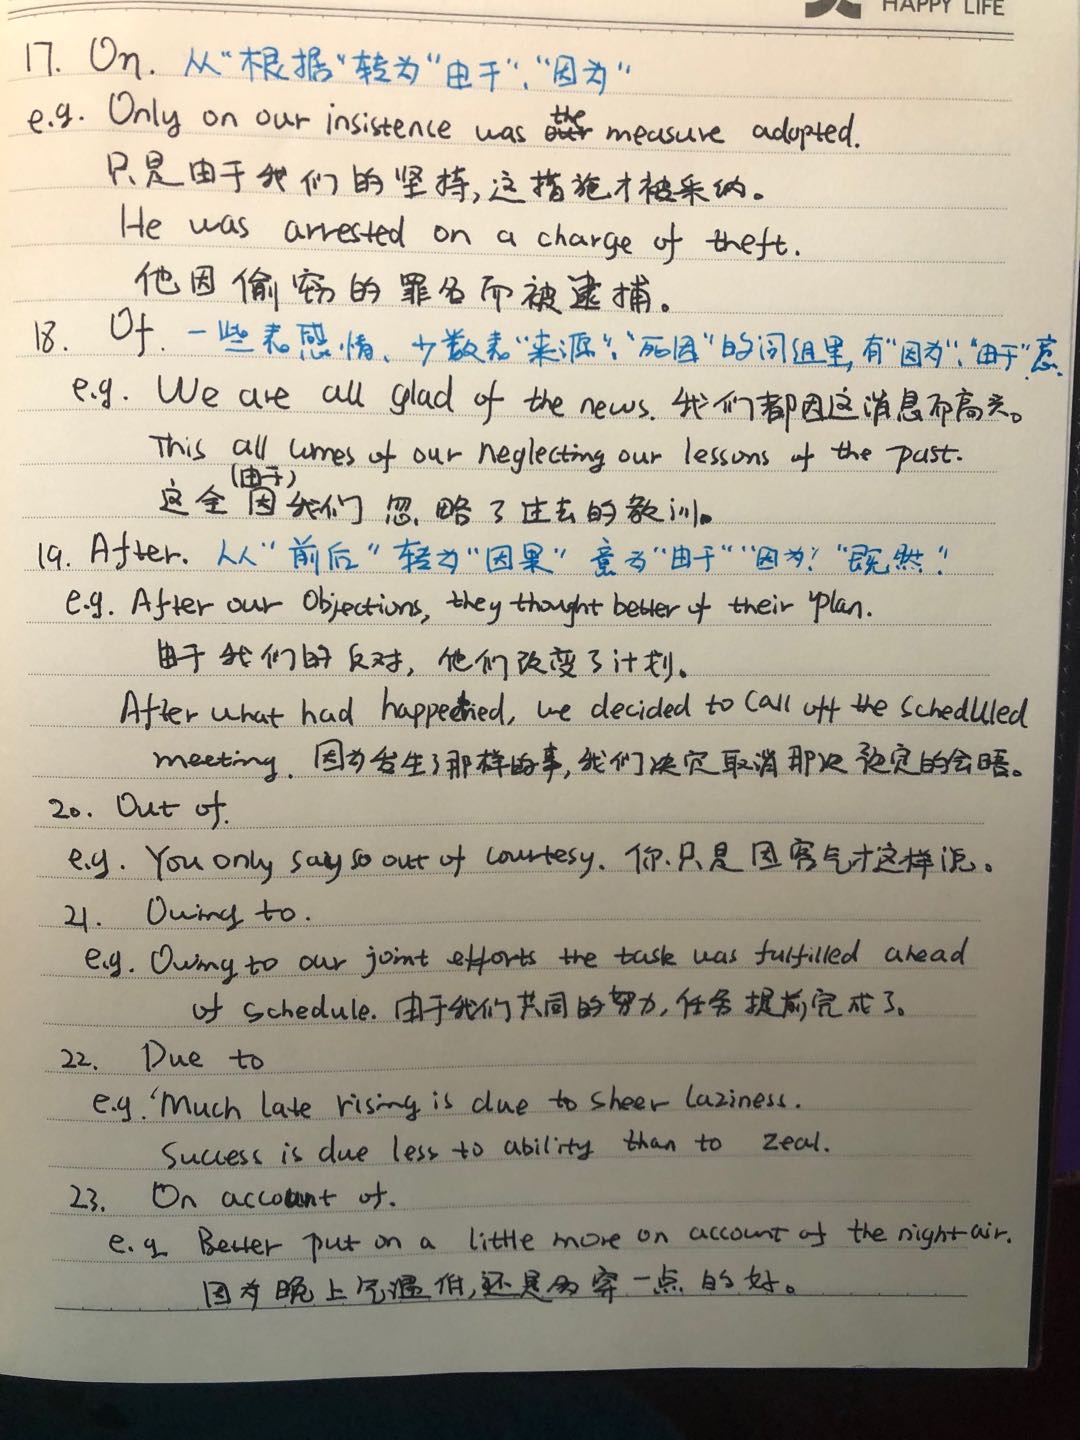 HAPPY LIFE
17. On. 从"根据"转为"由于"、"因为"
e.g. Only on our insistence was the measure adopted.
只是由于我们的坚持,这措施才被采纳。
He was arrested on a charge of theft.
他因偷窃的罪名而被逮捕。
18. Of. 一些表感情、少数表"来源"、"死因"的词组里,有"因为"、"由于"意.
e.g. We are all glad of the news. 我们都因这消息而高兴。
This all comes of our neglecting our lessons of the past.
(由于)
这全因我们忽略了过去的教训。
19. After. 从"前后"转为"因果"意为"由于""因为""既然"
e.g. After our objections, they thought better of their plan.
由于我们的反对,他们改变了计划。
After what had happened, we decided to call off the scheduled
meeting. 因为发生了那样的事,我们决定取消那次预定的会晤。
20. Out of.
e.g. You only say so out of courtesy. 你只是因客气才这样说。
21. Owing to.
e.g. Owing to our joint efforts the task was fulfilled ahead
of schedule. 由于我们共同的努力,任务提前完成了。
22. Due to
e.g. Much late rising is due to sheer laziness.
Success is due less to ability than to zeal.
23. On account of.
e.g. Better put on a little more on account of the night air.
因为晚上气温低,还是多穿一点的好。